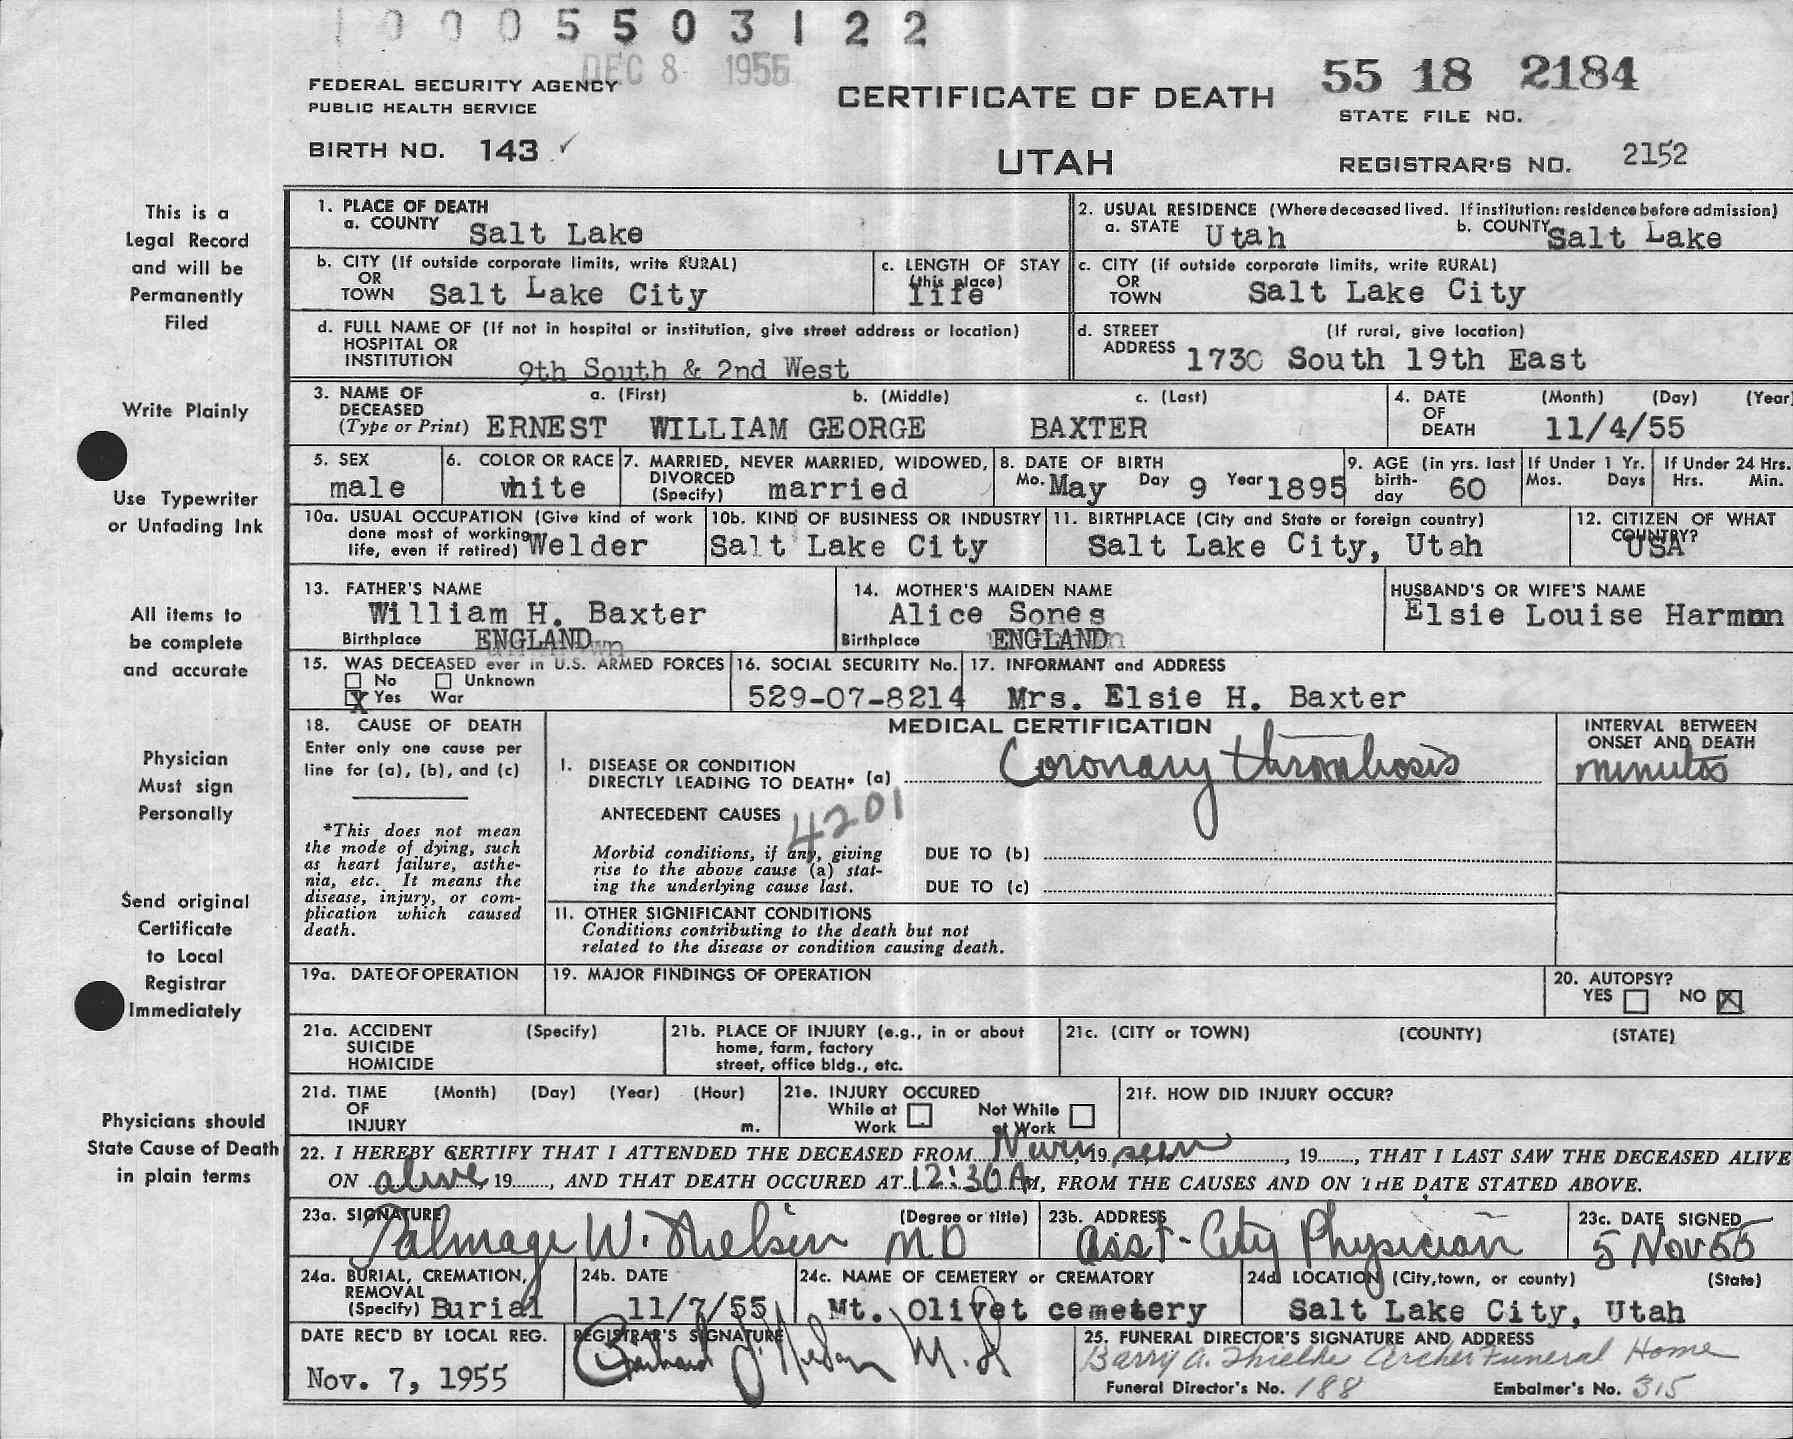 1 0 0 0 5 5 0 3 1 2 2
DEC 8 1955
FEDERAL SECURITY AGENCY
PUBLIC HEALTH SERVICE
BIRTH NO. 143 ✓
CERTIFICATE OF DEATH
UTAH
55 18 2184
STATE FILE NO.
REGISTRAR'S NO. 2152
This is a
Legal Record
and will be
Permanently
Filed
Write Plainly
Use Typewriter
or Unfading Ink
All items to
be complete
and accurate
Physician
Must sign
Personally
Send original
Certificate
to Local
Registrar
Immediately
Physicians should
State Cause of Death
in plain terms
1. PLACE OF DEATH
a. COUNTY Salt Lake
2. USUAL RESIDENCE (Where deceased lived. If institution: residence before admission)
a. STATE Utah b. COUNTY Salt Lake
b. CITY (If outside corporate limits, write RURAL)
OR
TOWN Salt Lake City
c. LENGTH OF STAY
(this place)
life
c. CITY (if outside corporate limits, write RURAL)
OR
TOWN Salt Lake City
d. FULL NAME OF (If not in hospital or institution, give street address or location)
HOSPITAL OR
INSTITUTION 9th South & 2nd West
d. STREET (If rural, give location)
ADDRESS 1730 South 19th East
3. NAME OF a. (First) b. (Middle) c. (Last)
DECEASED
(Type or Print) ERNEST WILLIAM GEORGE BAXTER
4. DATE (Month) (Day) (Year)
OF
DEATH 11/4/55
5. SEX
male
6. COLOR OR RACE
white
7. MARRIED, NEVER MARRIED, WIDOWED,
DIVORCED
(Specify) married
8. DATE OF BIRTH
Mo. May Day 9 Year 1895
9. AGE (in yrs. last
birth-
day 60
If Under 1 Yr.
Mos. Days
If Under 24 Hrs.
Hrs. Min.
10a. USUAL OCCUPATION (Give kind of work
done most of working
life, even if retired) Welder
10b. KIND OF BUSINESS OR INDUSTRY
Salt Lake City
11. BIRTHPLACE (City and State or foreign country)
Salt Lake City, Utah
12. CITIZEN OF WHAT
COUNTRY?
USA
13. FATHER'S NAME
William H. Baxter
Birthplace ENGLAND
14. MOTHER'S MAIDEN NAME
Alice Sones
Birthplace ENGLAND
HUSBAND'S OR WIFE'S NAME
Elsie Louise Harmon
15. WAS DECEASED ever in U.S. ARMED FORCES
No Unknown
X Yes War
16. SOCIAL SECURITY No.
529-07-8214
17. INFORMANT and ADDRESS
Mrs. Elsie H. Baxter
18. CAUSE OF DEATH
Enter only one cause per
line for (a), (b), and (c)
*This does not mean
the mode of dying, such
as heart failure, asthe-
nia, etc. It means the
disease, injury, or com-
plication which caused
death.
MEDICAL CERTIFICATION
I. DISEASE OR CONDITION
DIRECTLY LEADING TO DEATH* (a) Coronary thrombosis
ANTECEDENT CAUSES 4201
Morbid conditions, if any, giving
rise to the above cause (a) stat-
ing the underlying cause last.
DUE TO (b)
DUE TO (c)
INTERVAL BETWEEN
ONSET AND DEATH
minutes
II. OTHER SIGNIFICANT CONDITIONS
Conditions contributing to the death but not
related to the disease or condition causing death.
19a. DATE OF OPERATION
19. MAJOR FINDINGS OF OPERATION
20. AUTOPSY?
YES NO X
21a. ACCIDENT (Specify)
SUICIDE
HOMICIDE
21b. PLACE OF INJURY (e.g., in or about
home, farm, factory
street, office bldg., etc.
21c. (CITY or TOWN) (COUNTY) (STATE)
21d. TIME (Month) (Day) (Year) (Hour)
OF
INJURY m.
21e. INJURY OCCURED
While at Not While
Work at Work
21f. HOW DID INJURY OCCUR?
22. I HEREBY CERTIFY THAT I ATTENDED THE DECEASED FROM Never, 19 seen, 19, THAT I LAST SAW THE DECEASED ALIVE
ON alive, 19, AND THAT DEATH OCCURED AT 12:30 A M, FROM THE CAUSES AND ON THE DATE STATED ABOVE.
23a. SIGNATURE (Degree or title)
Talmage W. Nielsen MD
23b. ADDRESS
Asst-City Physician
23c. DATE SIGNED
5 Nov 55
24a. BURIAL, CREMATION,
REMOVAL
(Specify) Burial
24b. DATE
11/7/55
24c. NAME OF CEMETERY or CREMATORY
Mt. Olivet cemetery
24d LOCATION (City, town, or county) (State)
Salt Lake City, Utah
DATE REC'D BY LOCAL REG.
Nov. 7, 1955
REGISTRAR'S SIGNATURE
25. FUNERAL DIRECTOR'S SIGNATURE AND ADDRESS
Barry A. Thielke Archer Funeral Home
Funeral Director's No. 188 Embalmer's No. 315